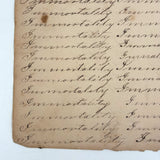 Immortality Immor
Immortality Immort
Immortality Immor
Immortality Immor
Immortality Immor
Immortality Immort
Immortality Immor
Immortality Imm
Immortality Imm
Immortality Imm
Immortality Im
Immortality Im